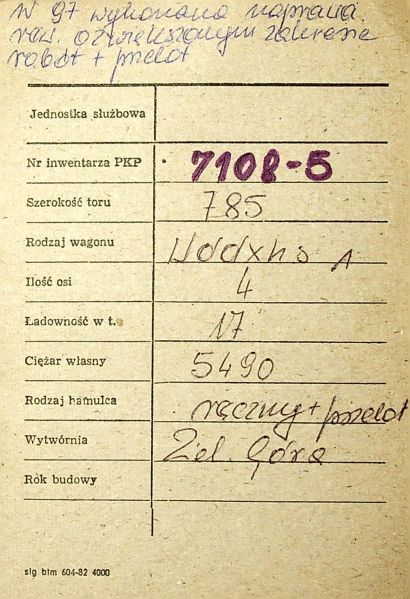 W 97 wykonano naprawa
rew. o zwiększonym zakresie
robót + przelot
Jednostka służbowa
Nr inwentarza PKP 7108-5
Szerokość toru 785
Rodzaj wagonu Wddxhs A
Ilość osi 4
Ładowność w t. 17
Ciężar własny 5490
Rodzaj hamulca ręczny + przelot
Wytwórnia Ziel. Góra
Rok budowy
slg btm 604-82 4000